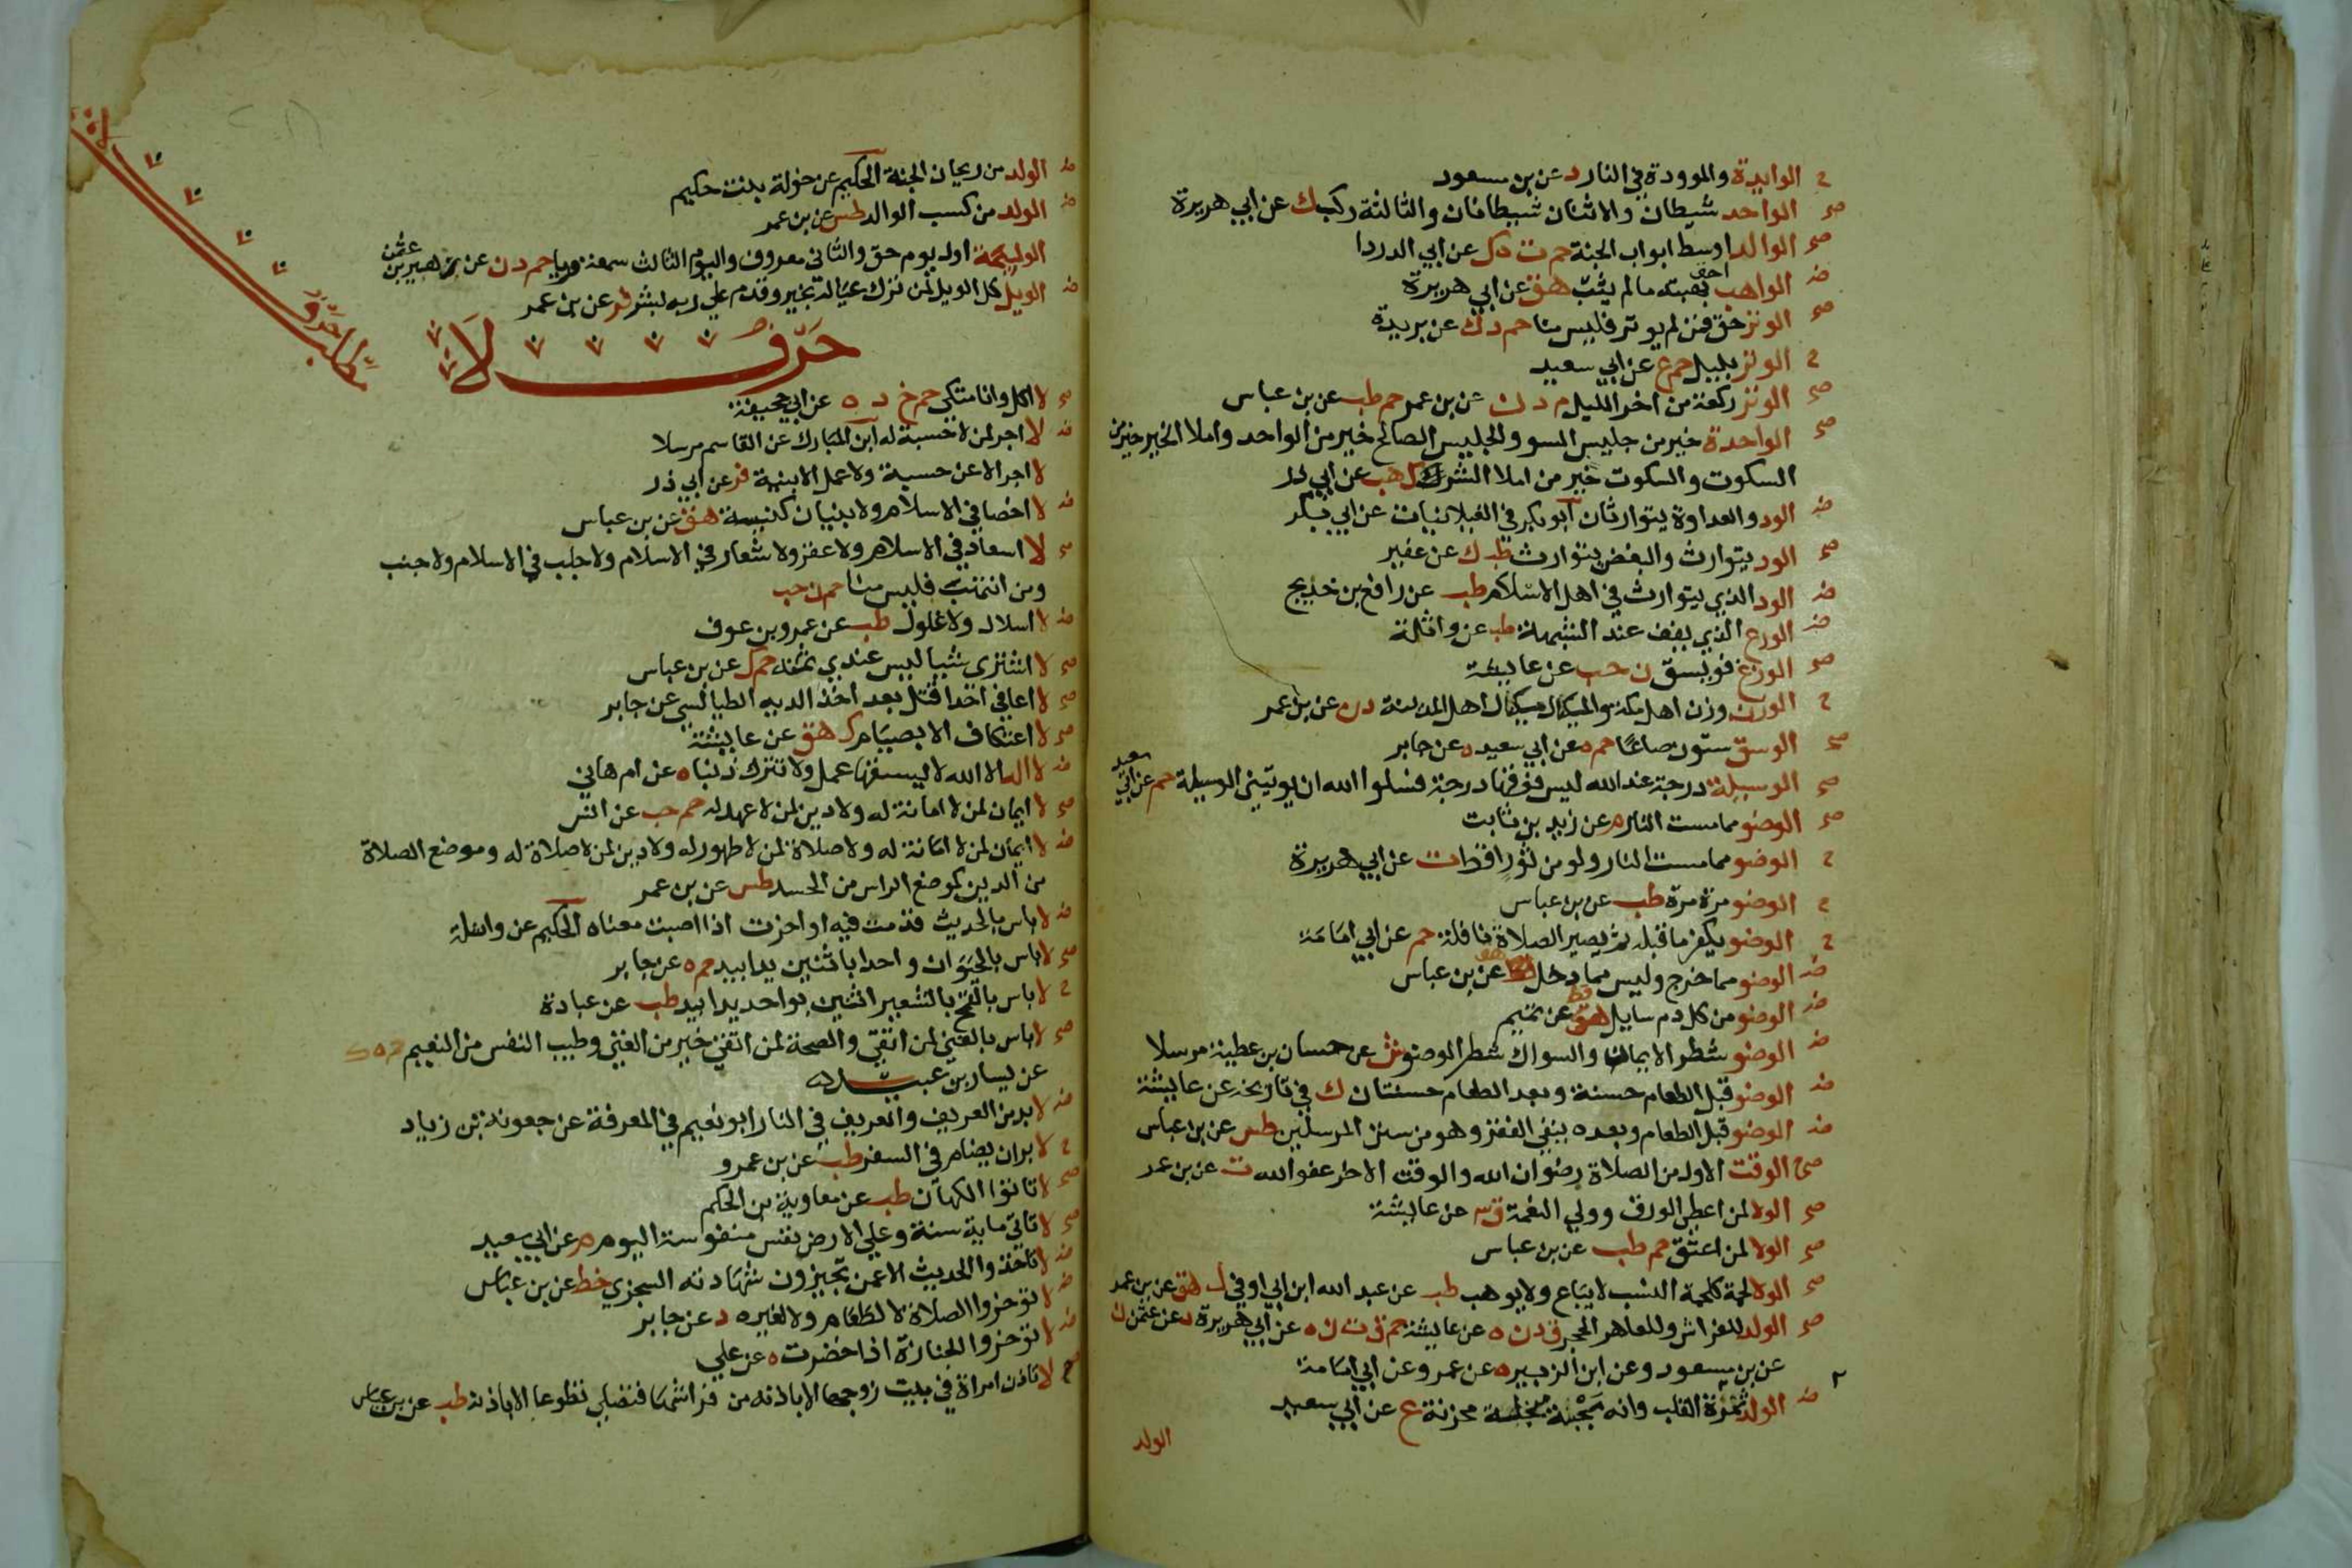 ح الوايدة والموودة في النار د عن بن مسعود
صح الواحد شيطان والاثنان شيطانان والثالثة ركب ك عن ابي هريرة
صح الوالد اوسط ابواب الجنة حم ت ه ك عن ابي الدردا
ض الواهب احق بهبته مالم يثب هق عن ابي هريرة
صح الوتر حق فمن لم يوتر فليس منا حم د ك عن بريدة
ح الوتر بليل حم ع عن ابي سعيد
صح الوتر ركعة من اخر الليل م د ن عن بن عمر حم طب عن بن عباس
صح الواحدة خير من جليس السو والجليس الصالح خير من الواحد واملا الخير خير من
السكوت والسكوت خير من املا الشر ك هب عن ابي ذر
ض الود والعداوة يتوارثان ابو بكر في الغيلانيات عن ابي بكر
صح الود يتوارث والبغض يتوارث طب ك عن عفير
ض الود الذي يتوارث في اهل الاسلام طب عن رافع بن خديج
ض الورع الذي يقف عند الشبهة طب عن واثلة
صح الوزغ فويسق ن حب عن عايشة
ح الوزن وزن اهل مكة والمكيال مكيال اهل المدينة د ن عن بن عمر
صح الوسق ستون صاعا حم ه عن ابي سعيد ه عن جابر
صح الوسيلة درجة عند الله ليس فوقها درجة فسلوا الله ان يوتيني الوسيلة حم عن ابي سعيد
صح الوضو مما مست النار م عن زيد بن ثابت
ح الوضو مما مست النار ولو من ثور اقط ت عن ابي هريرة
ح الوضو مرة مرة طب عن بن عباس
ح الوضو يكفر ما قبله ثم يصير الصلاة نافلة حم عن ابي امامة
ض الوضو مما خرج وليس مما دخل هق عن بن عباس
ض الوضو من كل دم سايل قط عن تميم
ض الوضو شطر الايمان والسواك شطر الوضو ش عن حسان بن عطية مرسلا
ض الوضو قبل الطعام حسنة وبعد الطعام حسنتان ك في تاريخه عن عايشة
ض الوضو قبل الطعام وبعده ينفي الفقر وهو من سنن المرسلين طس عن بن عباس
صح الوقت الاول من الصلاة رضوان الله والوقت الاخر عفو الله ت عن بن عمر
صح الولا لمن اعطى الورق وولي النعمة ق ٣ عن عايشة
صح الولا لمن اعتق حم طب عن بن عباس
صح الولا لحمة كلحمة النسب لا يباع ولا يوهب طب عن عبد الله ابن ابي اوفي ك هق عن بن عمر
صح الولد للفراش وللعاهر الحجر ق د ن ه عن عايشة حم ق ت ن ه عن ابي هريرة د عن عثمن ن
عن بن مسعود وعن ابن الزبير ه عن عمر وعن ابي امامة
ض الولد ثمرة القلب وانه مجبنة مبخلة محزنة ع عن ابي سعيد
الولد
ض الولد من ريحان الجنة الحكيم عن خولة بنت حكيم
ض الولد من كسب الوالد طس عن بن عمر
الوليمة اول يوم حق والثاني معروف واليوم الثالث سمعة وريا حم د ن عن زهير بن عثمن
ض الويل كل الويل لمن ترك عياله بخير وقدم علي ربه بشر فر عن بن عمر
حرف لا
صح لا اكل وانا متكي حم خ د ه عن ابي جحيفة
ض لا اجر لمن لا حسبة له ابن المبارك عن القاسم مرسلا
لا اجر الا عن حسبة ولا عمل الا بنية فر عن ابي ذر
ض لا اخصا في الاسلام ولا بنيان كنيسة هق عن بن عباس
صح لا اسعاد في الاسلام ولا عقر ولا شغار في الاسلام ولا جلب في الاسلام ولا جنب
ومن انتهب فليس منا حم ن حب
ض لا اسلال ولا غلول طب عن عمرو بن عوف
صح لا اشتري شيا ليس عندي ثمنه حم ك عن بن عباس
صح لا اعافي احدا قتل بعد اخذ الديه الطيالسي عن جابر
صح لا اعتكاف الا بصيام ك هق عن عايشة
ض لا اله الا الله لا يسبقها عمل ولا تترك ذنبا ه عن ام هاني
صح لا ايمان لمن لا امانة له ولا دين لمن لا عهد له حم حب عن انس
ض لا ايمان لمن لا امانة له ولا صلاة لمن لا طهور له ولا دين لمن لا صلاة له وموضع الصلاة
من الدين كموضع الراس من الجسد طس عن بن عمر
ض لا باس بالحديث قدمت فيه او اخرت اذا اصبت معناه الحكيم عن واثلة
صح لا باس بالحيوان واحدا باثنين يدا بيد حم ه عن جابر
ح لا باس بالقمح بالشعير اثنين بواحد يدا بيد طب عن عبادة
صح لا باس بالغني لمن اتقي والصحة لمن اتقي خير من الغني وطيب النفس من النعيم حم ه ك
عن يسار بن عبد
ض لا بد من العريف والعريف في النار ابو نعيم في المعرفة عن جعونة بن زياد
ح لا بر ان يصام في السفر طب عن بن عمرو
صح لا تاتوا الكهان طب عن معاوية بن الحكم
صح لا تاتي ماية سنة وعلي الارض نفس منفوسة اليوم م عن ابي سعيد
ض لا تاخذوا الحديث الا عمن تجيزون شهادته السجزي خط عن بن عباس
ض لا توخروا الصلاة لا لطعام ولا لغيره د عن جابر
ض لا توخروا الجنازة اذا حضرت ه عن علي
ح لا تاذن امراة في بيت زوجها الا باذنه من فراشها فتصلي تطوعا الا باذنه طب عن بن عباس